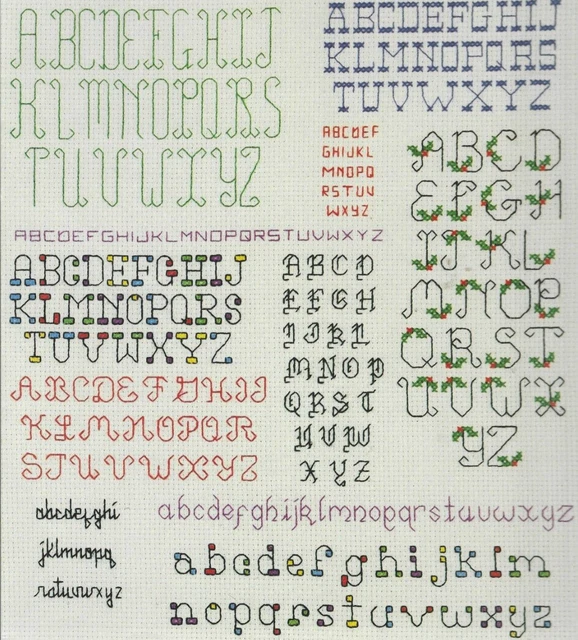 ABCDEFGHIJ
KLMNOPQRS
TUVWXYZ
ABCDEFGHIJ
KLMNOPQRS
TUVWXYZ
ABCDEF
GHIJKL
MNOPQ
RSTUV
WXYZ
ABCD
EFGH
IJKL
MNOP
QRST
UVWX
YZ
ABCDEFGHIJKLMNOPQRSTUVWXYZ
ABCDEFGHIJ
KLMNOPQRS
TUVWXYZ
ABCD
EFGH
IJKL
MNOP
QRST
UVW
XYZ
ABCDEFGHIJ
KLMNOPQR
STUVWXYZ
abcdefghi
jklmnopq
rstuvwxyz
abcdefghijklmnopqrstuvwxyz
abcdefghijklm
nopqrstuvwxyz